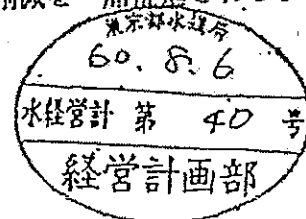 東京都水道局
60.8.6
水経営計 第 40 号
経営計画部